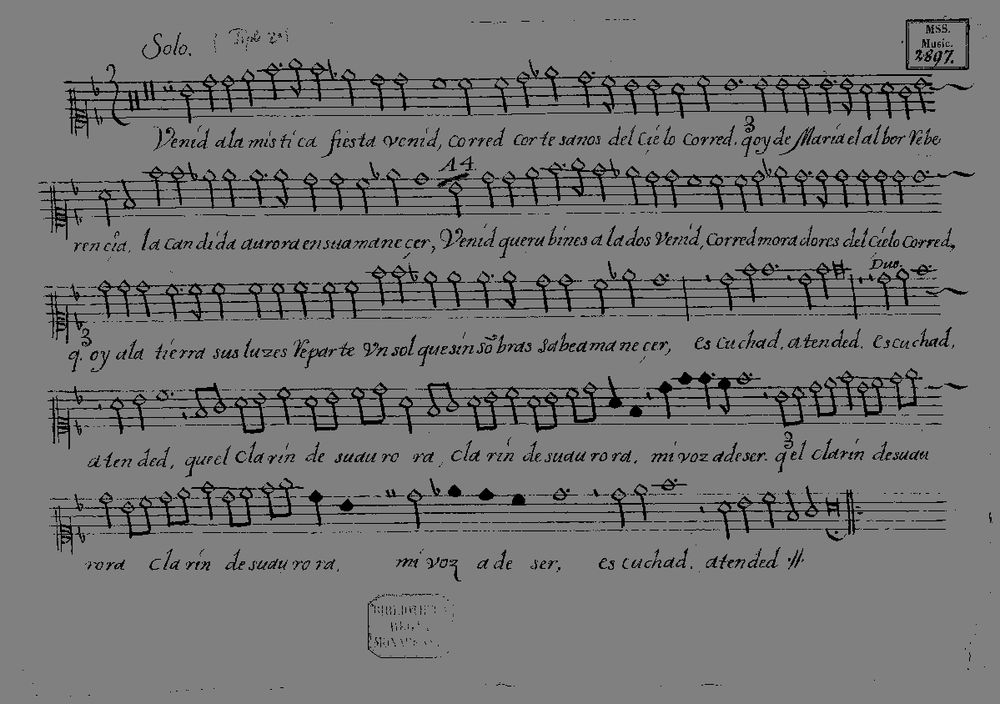 Solo. (Tiple 2º)
MSS.
Music.
2897.
Venid a la mistica fiesta venid, corred cortesanos del Cielo corred. q̃ oy de Maria el albor Rebe
A 4.
rencia, la candida aurora en su amanecer, Venid querubines a la dos Venid, Corred moradores del Cielo Corred,
Duo.
q. oy a la tierra sus luzes Reparte Vn sol que sin sõbras sabe amanecer, escuchad, atended. Escuchad,
atended, que el Clarin de su auro ra, Clarin de su aurora, mi voz a de ser. q̃ el Clarin de su au
rora Clarin de su aurora, mi voz a de ser, escuchad. atended
BIBLIOTHECA
REGIA
MONACENSIS